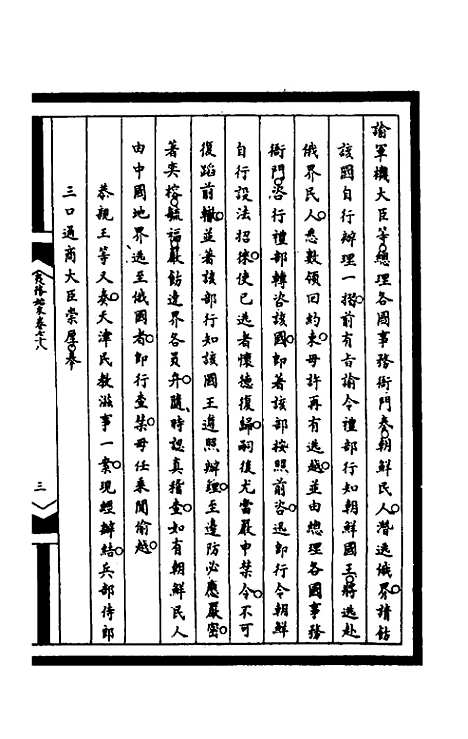 諭軍機大臣等。總理各國事務衙門奏。朝鮮民人。潛逃俄界。請飭
該國自行辦理一摺。前有旨諭令禮部行知朝鮮國王。將逃赴
俄界民人。悉數領回約束。毋許再有逃越。並由總理各國事務
衙門。咨行禮部轉咨該國。即著該部按照前咨。迅即行令朝鮮
自行設法招徠。使已逃者懷德復歸。嗣後尤當嚴申禁令。不可
復蹈前轍。並著該部行知該國王遵照辦理。至邊防必應嚴密。
著奕榕。毓福。嚴飭邊界各員弁。隨時認真稽查。如有朝鮮民人
由中國地界。逃至俄國者。即行查禁。毋任乘間偷越。
恭親王等又奏。天津民教滋事一案。現經辦結。兵部侍郎
三口通商大臣崇厚。奉
夷務始末卷七十八
三